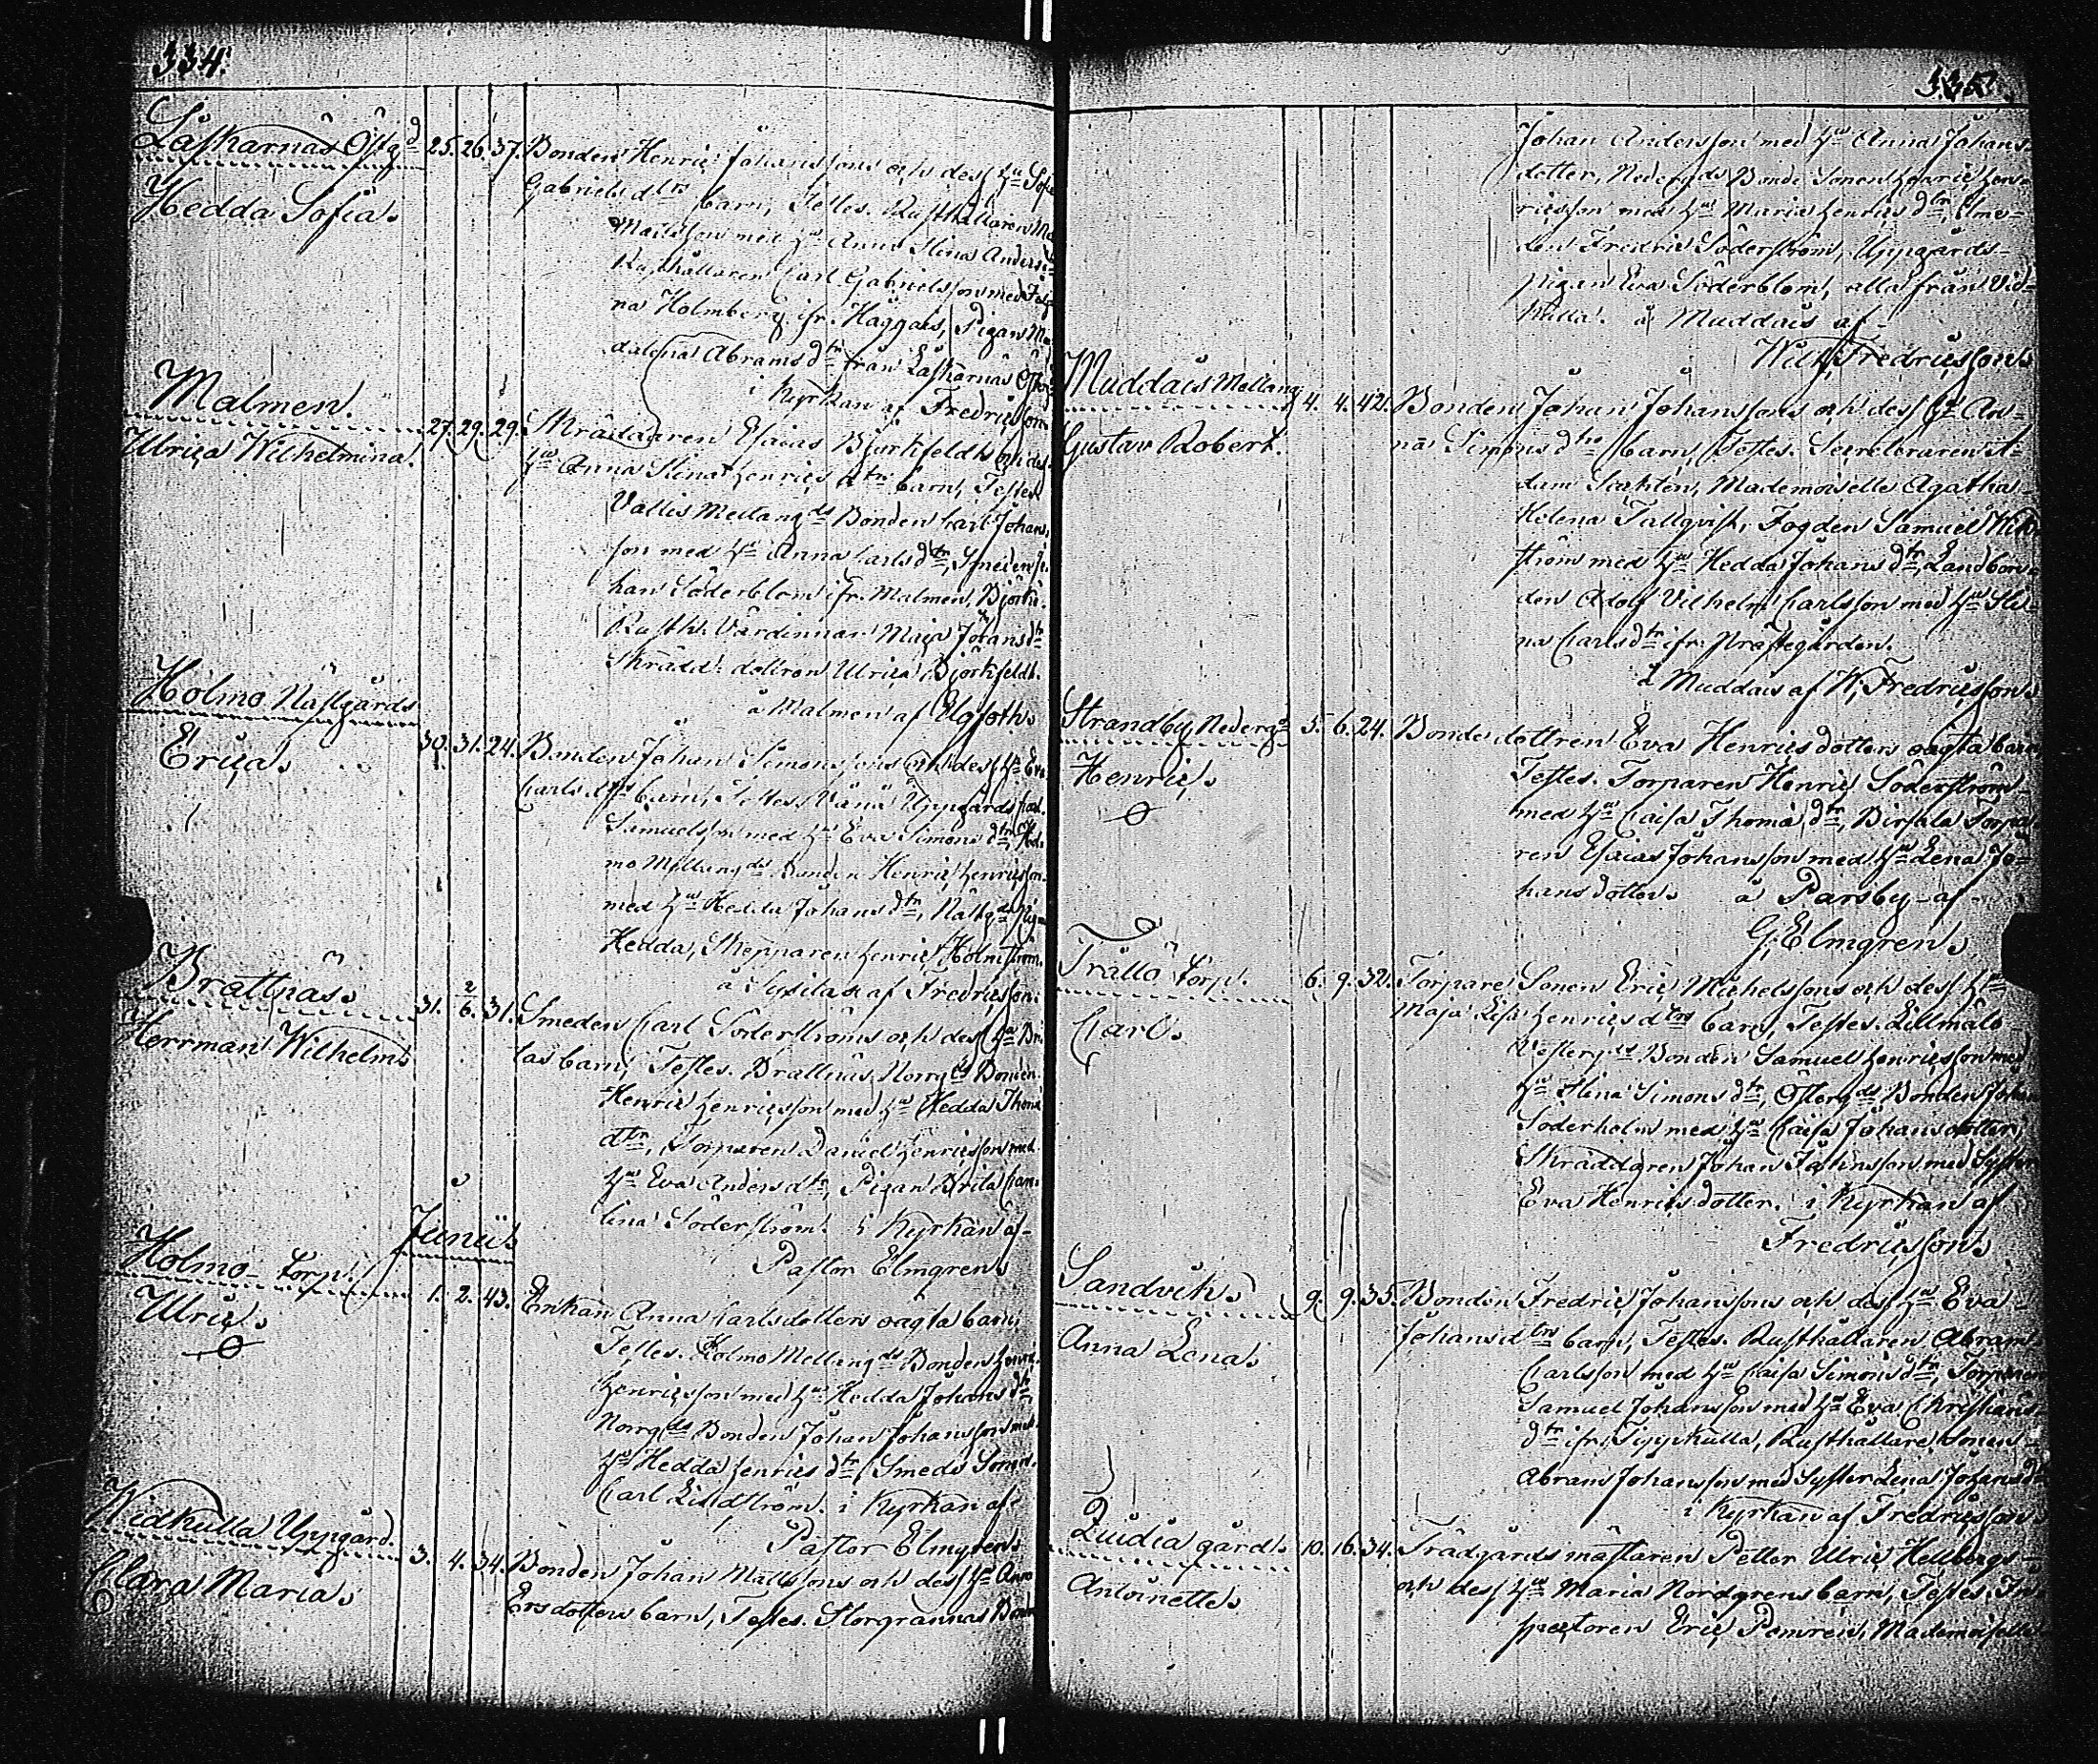 334.
Laskarnäs Östgd 25. 26. 37. Bonden Henric Johanssons och dess Hu Sofia
Hedda Sofia. Gabrielsdtrs barn, Testes. Rusthållaren
Mattsson med Hu Anna Stina Anders
Rusthållaren Carl Gabrielsson med
na Holmberg ifr. Häggais, Pigan Ma
dalena Abramsdtr från Laskarnäs Österg
i Kyrkan af Fredricsson
Malmen. 27. 29. 29. Skräddaren Esaias Björkfeldts och dess
Ulrica Wilhelmina. Hu Anna Stina Henricsdtrs barn, Testes
Vallis Mellangds Bonden Carl Johans
son med Hu Anna Carlsdtr, Smeden Jo
han Söderblom ifr. Malmen, Björkö
Rusth. Värdinnan Maja Johansdtr
Skrädd. dottren Ulrica Björkfeldt.
å Malmen af Elgfoth.
Holmo Nästgårds 30. 31. 24. Bonden Johan Simonssons och dess Hu Eva
Erica. Carlsdtrs barn, Testes. Uppgårds Carl
Samuelsson med Hu Eva Simonsdtr, Hol
mo Mellangds Bonden Henric Henricsson
med Hu Hedda Johansdtr, Nästgds Pigan
Hedda, Skepparen Henric Holmström.
å af Fredricsson.
Brattnäs. 31. 2/6. 31. Smeden Carl Söderströms och dess Hu Bri
Herrman Wilhelm tas barn, Testes. Brattnäs Norrgds Bonden
Henric Henricsson med Hu Hedda Thoma
dtr, Torparen Daniel Henricsson med
Hu Eva Andersdtr, Pigan Brita Caro
lina Söderström. i Kyrkan af
Pastor Elmgren
Junii
Holmo torp. 1. 2. 43. Enkan Anna Carlsdotters oägta barn,
Ulric. Testes. Holmo Mellangds Bonden Henric
Henricsson med Hu Hedda Johansdtr,
Norrgds Bonden Johan Johansson med
Hu Hedda Henricsdtr, Smeds Sonen
Carl Lindström. i Kyrkan af
Pastor Elmgren
Widkulla Uppgård. 3. 4. 34. Bonden Johan Mattssons och dess Hu Anna
Clara Maria. Ersdotters barn, Testes. Storgrannas Bonden
335.
Johan Andersson med Hu Anna Johans
dotter, Nedergds Bonde Sonen Henric Hen
ricsson med Hu Maria Henricsdtr,
den Fredric Söderström, Uppgårds
pigan Eva Söderblom, alla från Vid
kulla. å Muddais af
Wilh. Fredricsson
Muddais Mellang 4. 4. 42. Bonden Johan Johanssons och dess Hu An
Gustav Robert. na Simonsdtrs barn, Testes. Secreteraren A
dam Mademoiselle Agatha
Helena Tallqvist, Fogden Samuel
ström med Hu Hedda Johansdtr, Landbon
den Adolf Vilhelm Carlsson med Hu Sti
na Carlsdtr ifr. Prästegården.
å Muddais af W. Fredricsson
Strandby Nederg 5. 6. 24. Bonde dottren Eva Henricsdotters oägta barn
Henric. Testes. Torparen Henric Söderström
med Hu Caisa Thomädtr, Birsala Torpa
ren Esaias Johansson med Hu Lena Jo
hansdotter. å Parsby af
G. Elmgren
Trällö torp. 6. 9. 32. Torpare Sonen Eric Michelssons och dess Hu
Carl. Maja Lisa Henricsdtrs barn, Testes. Lillmälö
Vestergds Bonden Samuel Henricsson med
Hu Stina Simonsdtr, Östergds Bonden Johan
Söderholm med Hu Caisa Johansdotter,
Skräddaren Johan Johansson med Syster
Eva Henricsdotter. i Kyrkan af
Fredricsson
Sandvik. 9. 9. 35. Bonden Fredric Johanssons och dess Hu Eva
Anna Lena. Johansdtrs barn, Testes. Rusthållaren Abram
Carlsson med Hu Caisa Simonsdtr, Torparen
Samuel Johansson med Hu Eva Christians
dtr ifr. Sippkulla, Rusthållare Sonen
Abram Johansson med Syster Lena Johansdtr
i Kyrkan af Fredricsson
Quidia gård. 10. 16. 34. Trädgårdsmästaren Petter Ulric Hellbergs
Antoinette. och dess Hu Maria Nordgrens barn, Testes, In
spectoren Eric Pomren, Mademoiselle